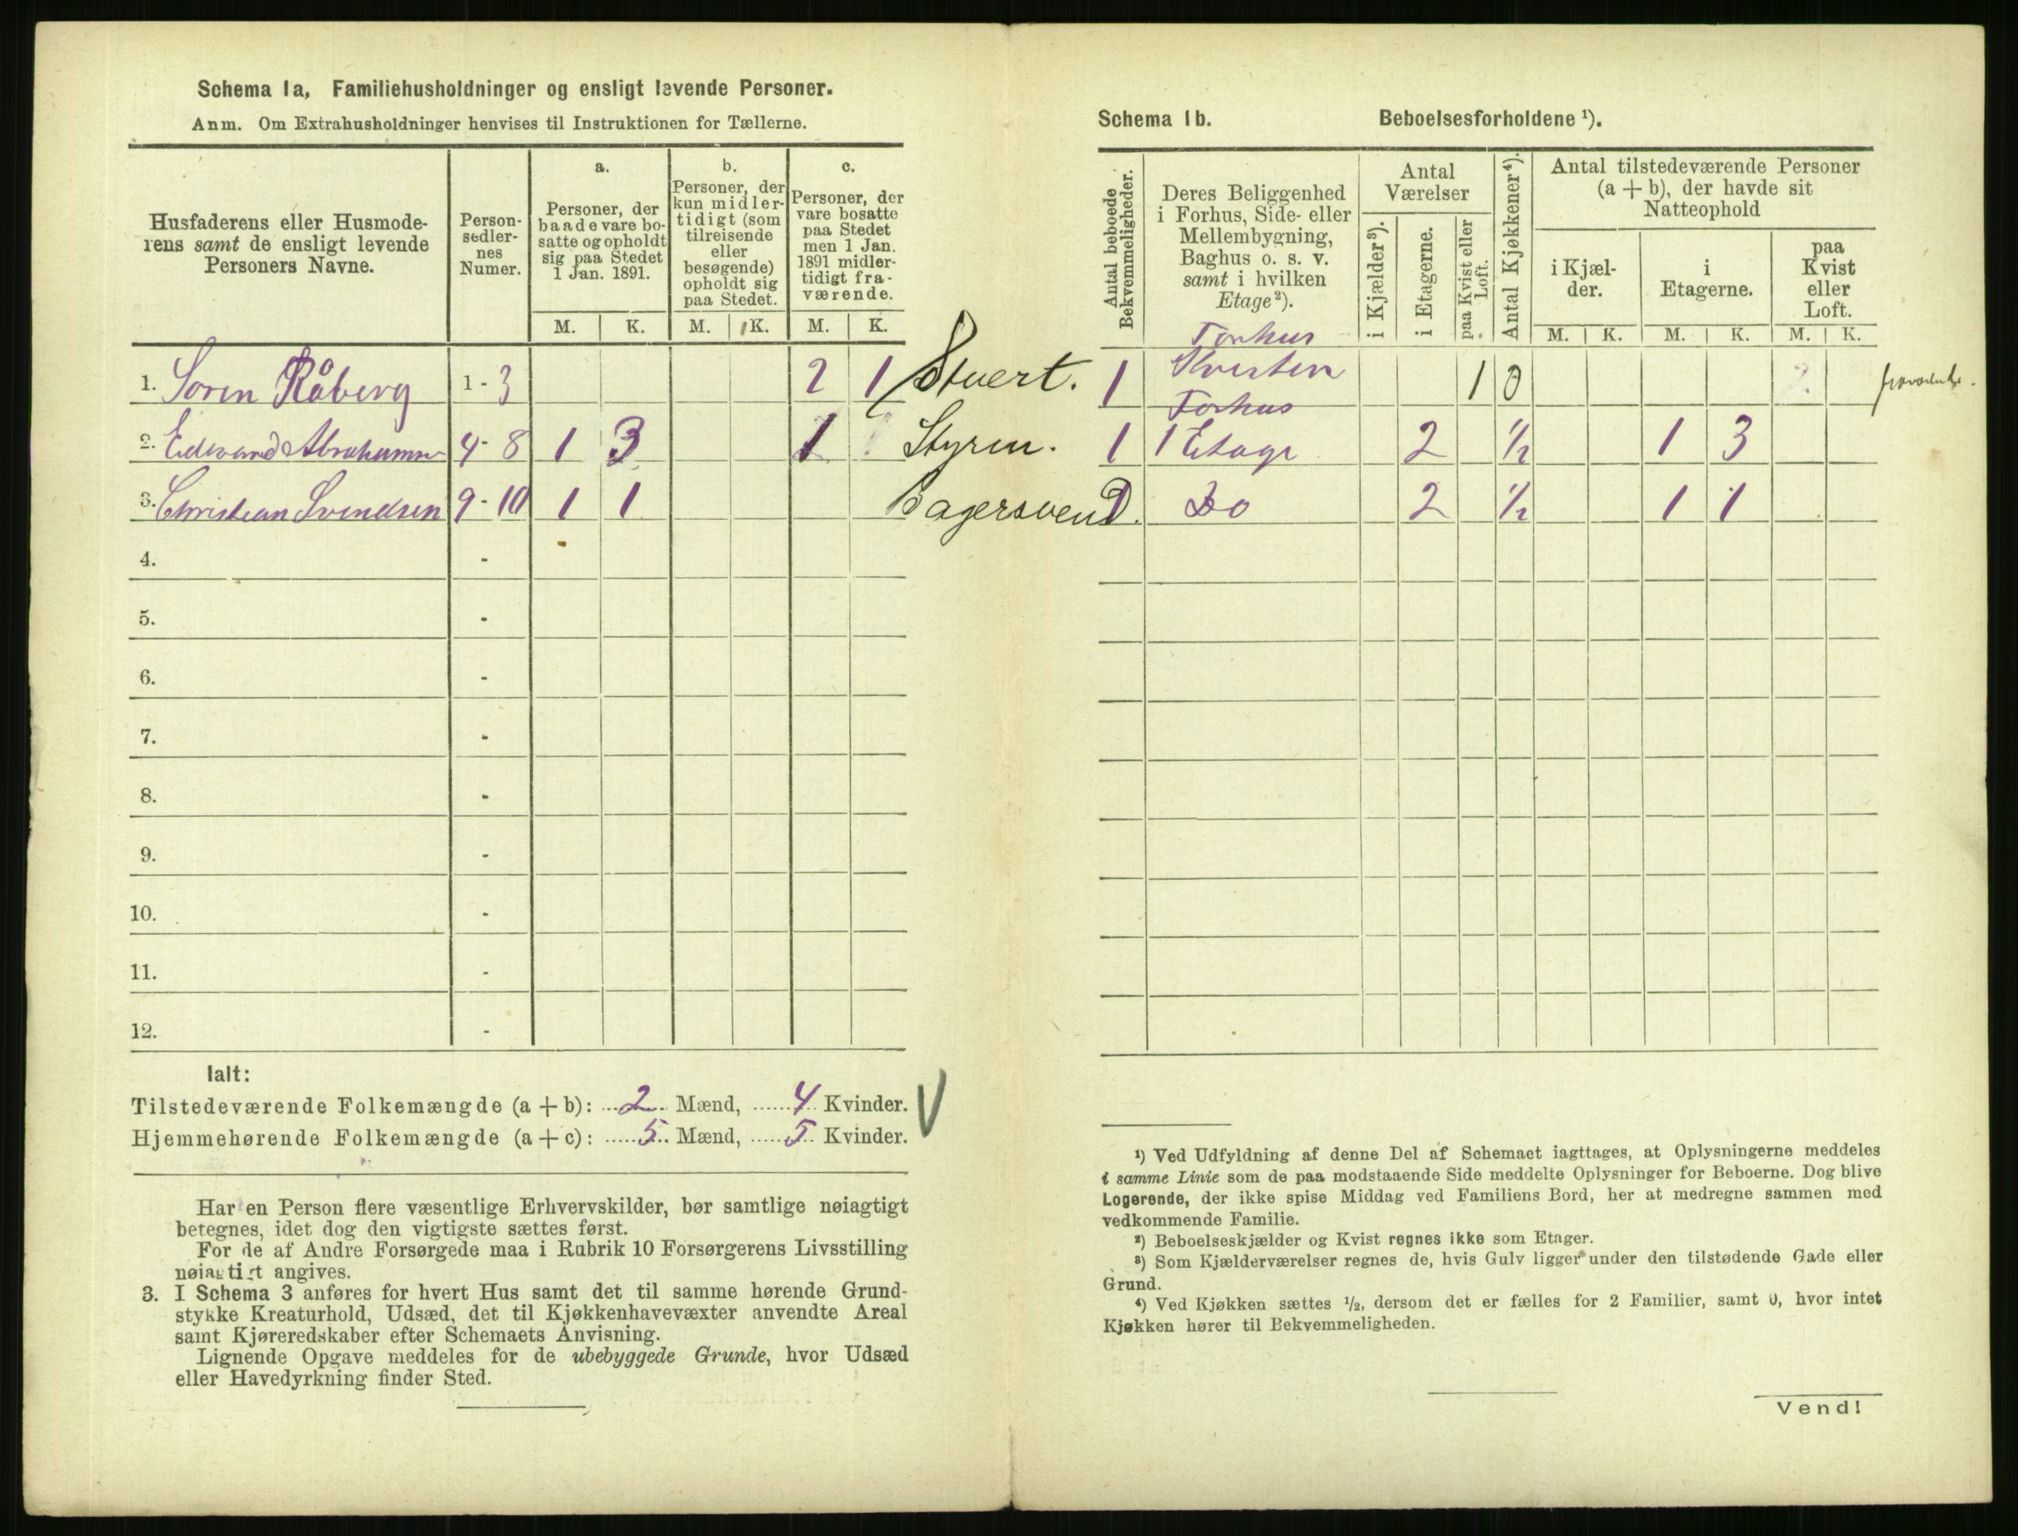 Schema 1a, Familiehusholdninger og ensligt levende Personer.
Anm. Om Extrahusholdninger henvises til Instruktionen for Tællerne.
Husfaderens eller Husmode-
rens samt de ensligt levende
Personers Navne.
Person-
sedler-
nes
Numer.
a.
Personer, der
baade vare bo-
satte og opholdt
sig paa Stedet
1 Jan. 1891.
b.
Personer, der
kun midler-
tidigt (som
tilreisende
eller
besøgende)
opholdt sig
paa Stedet.
c.
Personer, der
vare bosatte
paa Stedet
men 1 Jan.
1891 midler-
tidigt fra-
værende.
M. K. M. K. M. K.
1. Soren Råberg 1 - 3 2 1 Stuert.
2. Edward Abrahamsen 4 - 8 1 3 1 Styrm.
3. Christian Svendsen 9 - 10 1 1 Bagersvend.
4. -
5. -
6. -
7. -
8. -
9. -
10. -
11. -
12. -
Ialt:
Tilstedeværende Folkemængde (a + b): 2 Mænd, 4 Kvinder.
Hjemmehørende Folkemængde (a + c): 5 Mænd, 5 Kvinder.
Har en Person flere væsentlige Erhvervskilder, bør samtlige nøiagtigt
betegnes, idet dog den vigtigste sættes først.
For de af Andre Forsørgede maa i Rubrik 10 Forsørgerens Livsstilling
nøiagtigt angives.
3. I Schema 3 anføres for hvert Hus samt det til samme hørende Grund-
stykke Kreaturhold, Udsæd, det til Kjøkkenhavevæxter anvendte Areal
samt Kjøreredskaber efter Schemaets Anvisning.
Lignende Opgave meddeles for de ubebyggede Grunde, hvor Udsæd
eller Havedyrkning finder Sted.
Schema 1b. Beboelsesforholdene ¹).
Antal beboede
Bekvemmeligheder.
Deres Beliggenhed
i Forhus, Side- eller
Mellembygning,
Baghus o. s. v.
samt i hvilken
Etage²).
Antal
Værelser
i Kjælder³).
i Etagerne.
paa Kvist eller
Loft.
Antal Kjøkkener⁴).
Antal tilstedeværende Personer
(a + b), der havde sit
Natteophold
i Kjæl-
der.
i
Etagerne.
paa
Kvist
eller
Loft.
M. K. M. K. M. K.
Forhus
1 Kvisten 1 0
Forhus
1 1 Etage 2 ½ 1 3
1 Do 2 ½ 1 1
¹) Ved Udfyldning af denne Del af Schemaet iagttages, at Oplysningerne meddeles
i samme Linie som de paa modstaaende Side meddelte Oplysninger for Beboerne. Dog blive
Logerende, der ikke spise Middag ved Familiens Bord, her at medregne sammen med
vedkommende Familie.
²) Beboelseskjælder og Kvist regnes ikke som Etager.
³) Som Kjælderværelser regnes de, hvis Gulv ligger under den tilstødende Gade eller
Grund.
⁴) Ved Kjøkken sættes ½, dersom det er fælles for 2 Familier, samt 0, hvor intet
Kjøkken hører til Bekvemmeligheden.
Vend!